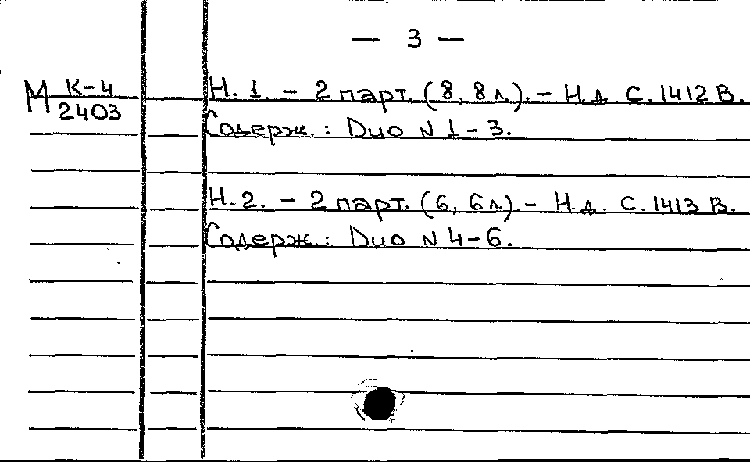 — 3 —
М К-4
2403
Н. 1. - 2 парт. (8, 8 л.) - Н.д. С. 1412 В.
Содерж.: Дио N 1-3.
Н. 2. - 2 парт. (6, 6 л.) - Н.д. С. 1413 В.
Содерж.: Дио N 4-6.